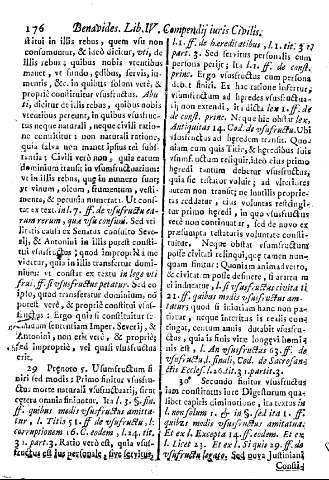 176 Benavides. Lib. IV. Compendij iuris Civilis.
stitui in illis rebus, quem vsu non
consumuntur, & ideò dicitur, vti, de
illis rebus; quibus nobis vtentibus
manet, vt fundo, ędibus, servis, iu-
mentis, &c. in quibus solam verè, &
propriè constituitur vsusfructus. Abu
ti, dicitur de illis rebus, quibus nobis
vtentibus pereunt, in quibus vsusfruc-
tus neque naturali, neque civili ratio-
ne constituitur: non naturali ratione,
quia salva non manet ipsius rei sub-
tantia; Civili verò non, quia eatum
dominium transit in vsumfructuarium:
ve in illis rebus, quę in numero sunt;
vt vinum, oleum, frumentum, vesti-
menta, & pecunia numerata. Ut cons-
tat ex text. in l. 7. ff. de vsufructu ea-
rum rerum, quæ vsu consum. Sed vti-
litatis causa ex Senatus consulto Seve-
rij, & Antonini in illis potest consti-
tui vsusfructus; quod impropriè me
videtur, quia in illis transfertur domi-
nium: vt constat ex textu in lege vti
frui. ff. si vsusfructus petatur. Sed co
ipso, quod transferatur dominium, nō
potest verè, & propriè constitui vsus-
fructus: Ergo quia si constituitur se-
cundum sententiam Imper. Severij, &
Antonini, non erit verè, & propriè;
sed impropriè, vel quasi vsusfructus
erit.
29 Pręnoto 5. Usumfructum fi
niri sed modis: Primo finitur vsusfru-
ctus morte naturali vsufructuarij, sicut
cætera omnia finiuntur. Ita l. 3. §. fin.
ff. quibus modis vsusfructus amitta-
tur, l. Titis 51. ff de vsufructu, l:
corruptionem 16. C. eodem, l. 24. tit.
31. part. 3. Ratio verò est, quia vsus-
fructus est ius personale, sive servitus,
l. 1. ff. de hæreditatibus, l. 1. tit. 31
part. 3. Sed servitus personalis cum
persona perijt; Ita l. 1. ff. de const.
princ. Ergo vsusfructus cum persona
debet finiri. Ex hac ratione infertur;
vsumfructum ad hęredes vsusfructua-
rij non extendi, ita dicta lex 1. ff. de
de const. princ. Neque hic obstat lex
antiquitas 14. Cod. de vsufructu. Ubi
vsusfructus ad hęredem transit. Quo-
niam cum quis Titio, & hęredibus suis
vsumfructum reliquit, ideò eius primo
hęredi tantum debetur vsusfructus,
quia sic testator voluit; ad vlteriores
autem non transit, ne inutilis proprie-
tas reddatur, eius voluntas restringi-
tur primo hęredi, in quo vsusfructus
verè non continuatur, sed de novo ex
præsumpta testatoris voluntate consti-
tuitur. Neque obstat vsumfructum
posse civitati relinqui, quę tamen nun-
quam finitur: Quoniam anima vertere,
& civitatem posse deficere, si aratrū m
ei inducatur, l. si vsusfructus civita ti
21. ff. quibus modis vsusfructus am-
tatur; quod si initiam hanc non pa-
tiatur, neque interitus in reali con-
tingat, centum annis duratur vsusfru-
ctus, quia is finis vitæ longevi homi-
nis est, l. An vsusfructus 23. ff. de
vsufructu, l. finali. Cod. de Sacrosan-
ctis Eccles. l. 26. tit. 31. partit. 3.
30 Secundo finitur vsusfructus
iam constitutus iure Digestorum qua-
libet capitis diminutione, ita textus in
l. non solum 1. & in §. sed ita 1. ff.
quibus modis vsusfructus amittatur.
Et ex l. Excepta 14. ff. eodem. Et ex
l. Licet 23. Et ex l. Si quis 29. ff. de
vsufructu legato. Sed nova Justiniani
Consti-